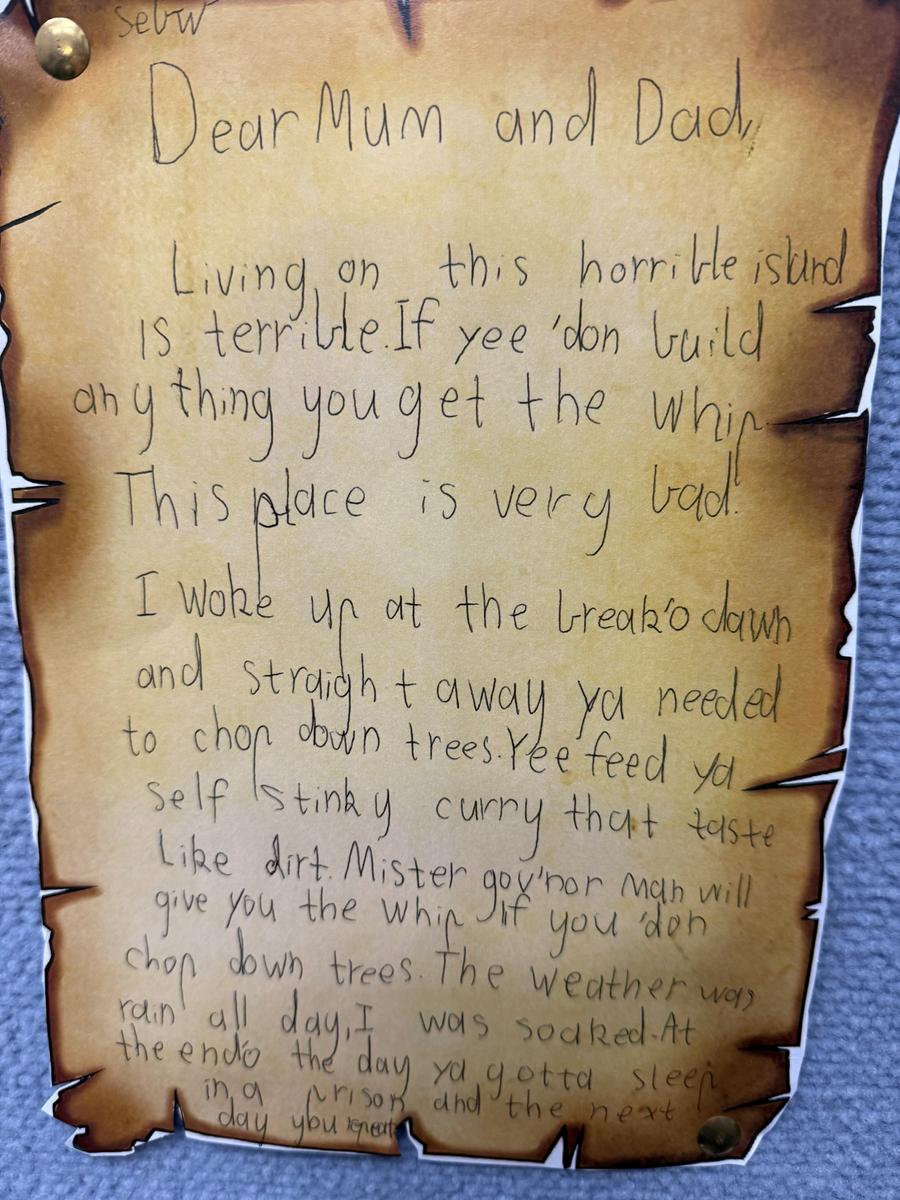 sebw
Dear Mum and Dad,
Living on this horrible island
Is terrible. If yee 'don build
any thing you get the whip
This place is very bad.
I woke up at the break'o dawn
and straight away ya needed
to chop down trees. Yee feed ya
self stinky curry that taste
Like dirt. Mister gov'nor Man will
give you the whip if you 'don
chop down trees. The weather was
rain all day, I was soaked. At
the end'o the day ya gotta sleep
in a prison and the next
day you repeat